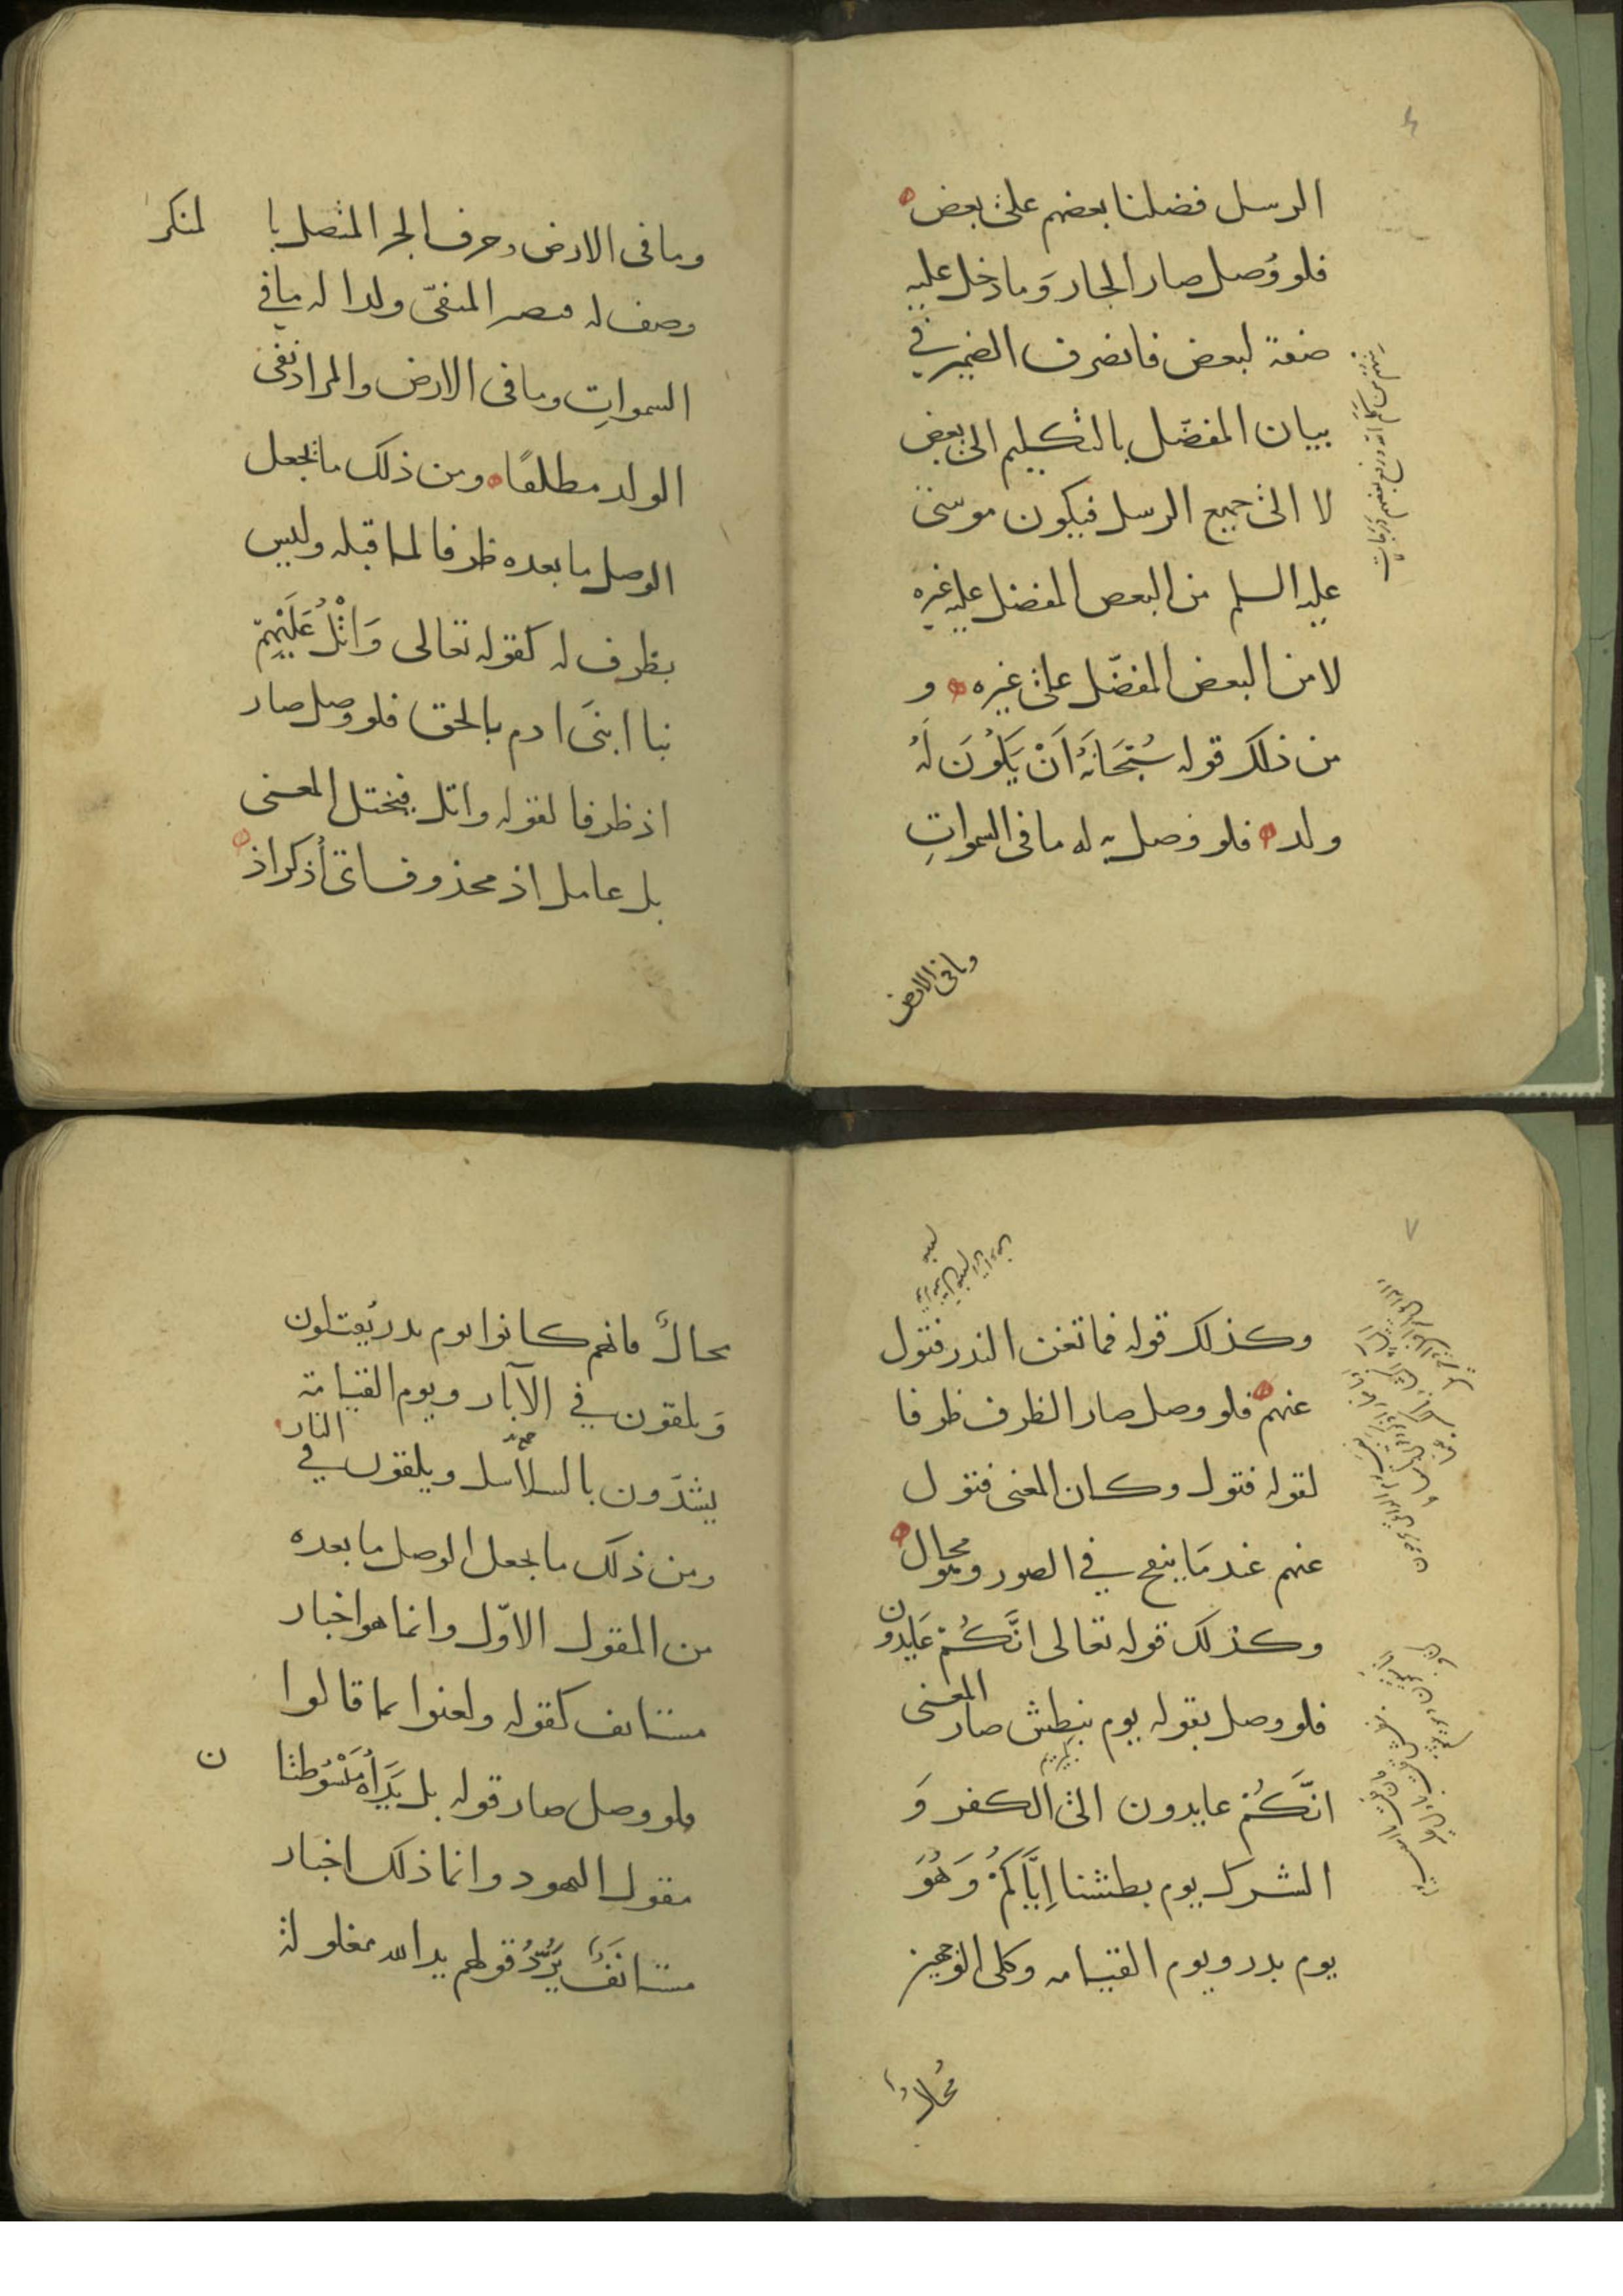 الرسل فضلنا بعضهم على بعض
فلو وُصل صار الجار وَما دخل عليه
صفة لبعض فانصرف الضمير في
بيان المفضّل بالتكليم الى بعض
لا الى جميع الرسل فيكون موسى
عليه السلم من البعض المفضل عليه غيره
لا من البعض المفضّل على غيره و
من ذلك قوله سُبْحَانَهُ اَنْ يَكُونَ لَهُ
ولد فلو وصل به له ما في السمواتِ
وما في الارض
وما في الارض وحرف الجر المتصل با لمنكر
وصف له فصار المنفىّ ولدا له ما في
السمواتِ وما في الارض والمراد نفى
الولد مطلقًا ومن ذلك ما يجعل
الوصل ما بعده ظرفا لما قبله وليس
بظرف له كقوله تعالى وَاتْلُ عَلَيْهِمْ
نبا ابنَى ادم بالحق فلو وصل صار
اذ ظرفا لقوله واتل فيختل المعنى
بل عامل اذ محذوف اى أذكر اذ
٧
وكذلك قوله فما تغن النذر فتول
عنهم فلو وصل صار الظرف ظرفا
لقوله فتول وكان المعنى فتول
عنهم عند مَا ينفخ في الصور وهو محال
وكذلك قوله تعالى انَّكُمْ عَايدون
فلو وصل بقوله يوم نبطش صار المعنى
انَّكُمْ عايدون الى الكفر وَ
الشرك يوم بطشنا اِيَّاكُمْ وَهُوَ
يوم بدر ويوم القيامه وكلى الوجهين
مُحالاً
محالٌ فانهم كانوا يوم بدر يُقتلون
وَيلقون في الآبار ويوم القيامة
يشدّون بالسلاسل ويلقون في النار
ومن ذلك ما يجعل الوصل ما بعده
من المقول الاوّل وانما هو اخبار
مستانف كقوله ولعنوا بما قالوا
فلو وصل صار قوله بل يَدَاهُ مَبْسُوطتا ن
مقول اليهود وانما ذلك اخبار
مستانفٌ يَرُدُّ قولهم يد الله مغلولة